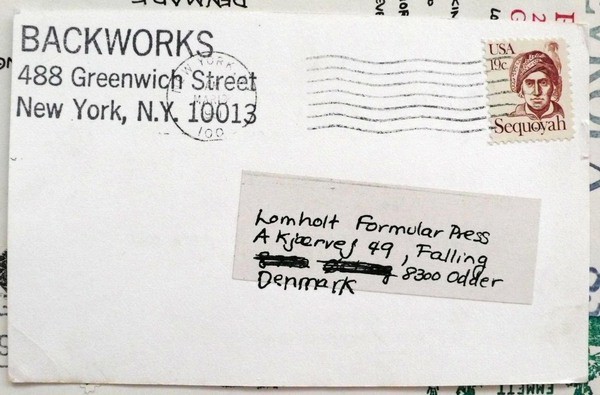 BACKWORKS
488 Greenwich Street
New York, N.Y. 10013
NEW YORK
MAR
100
USA
19c
Sequoyah
Lomholt Formular Press
A Kjærvej 49, Falling
8300 Odder
Denmark
DENMARK
EMMETT